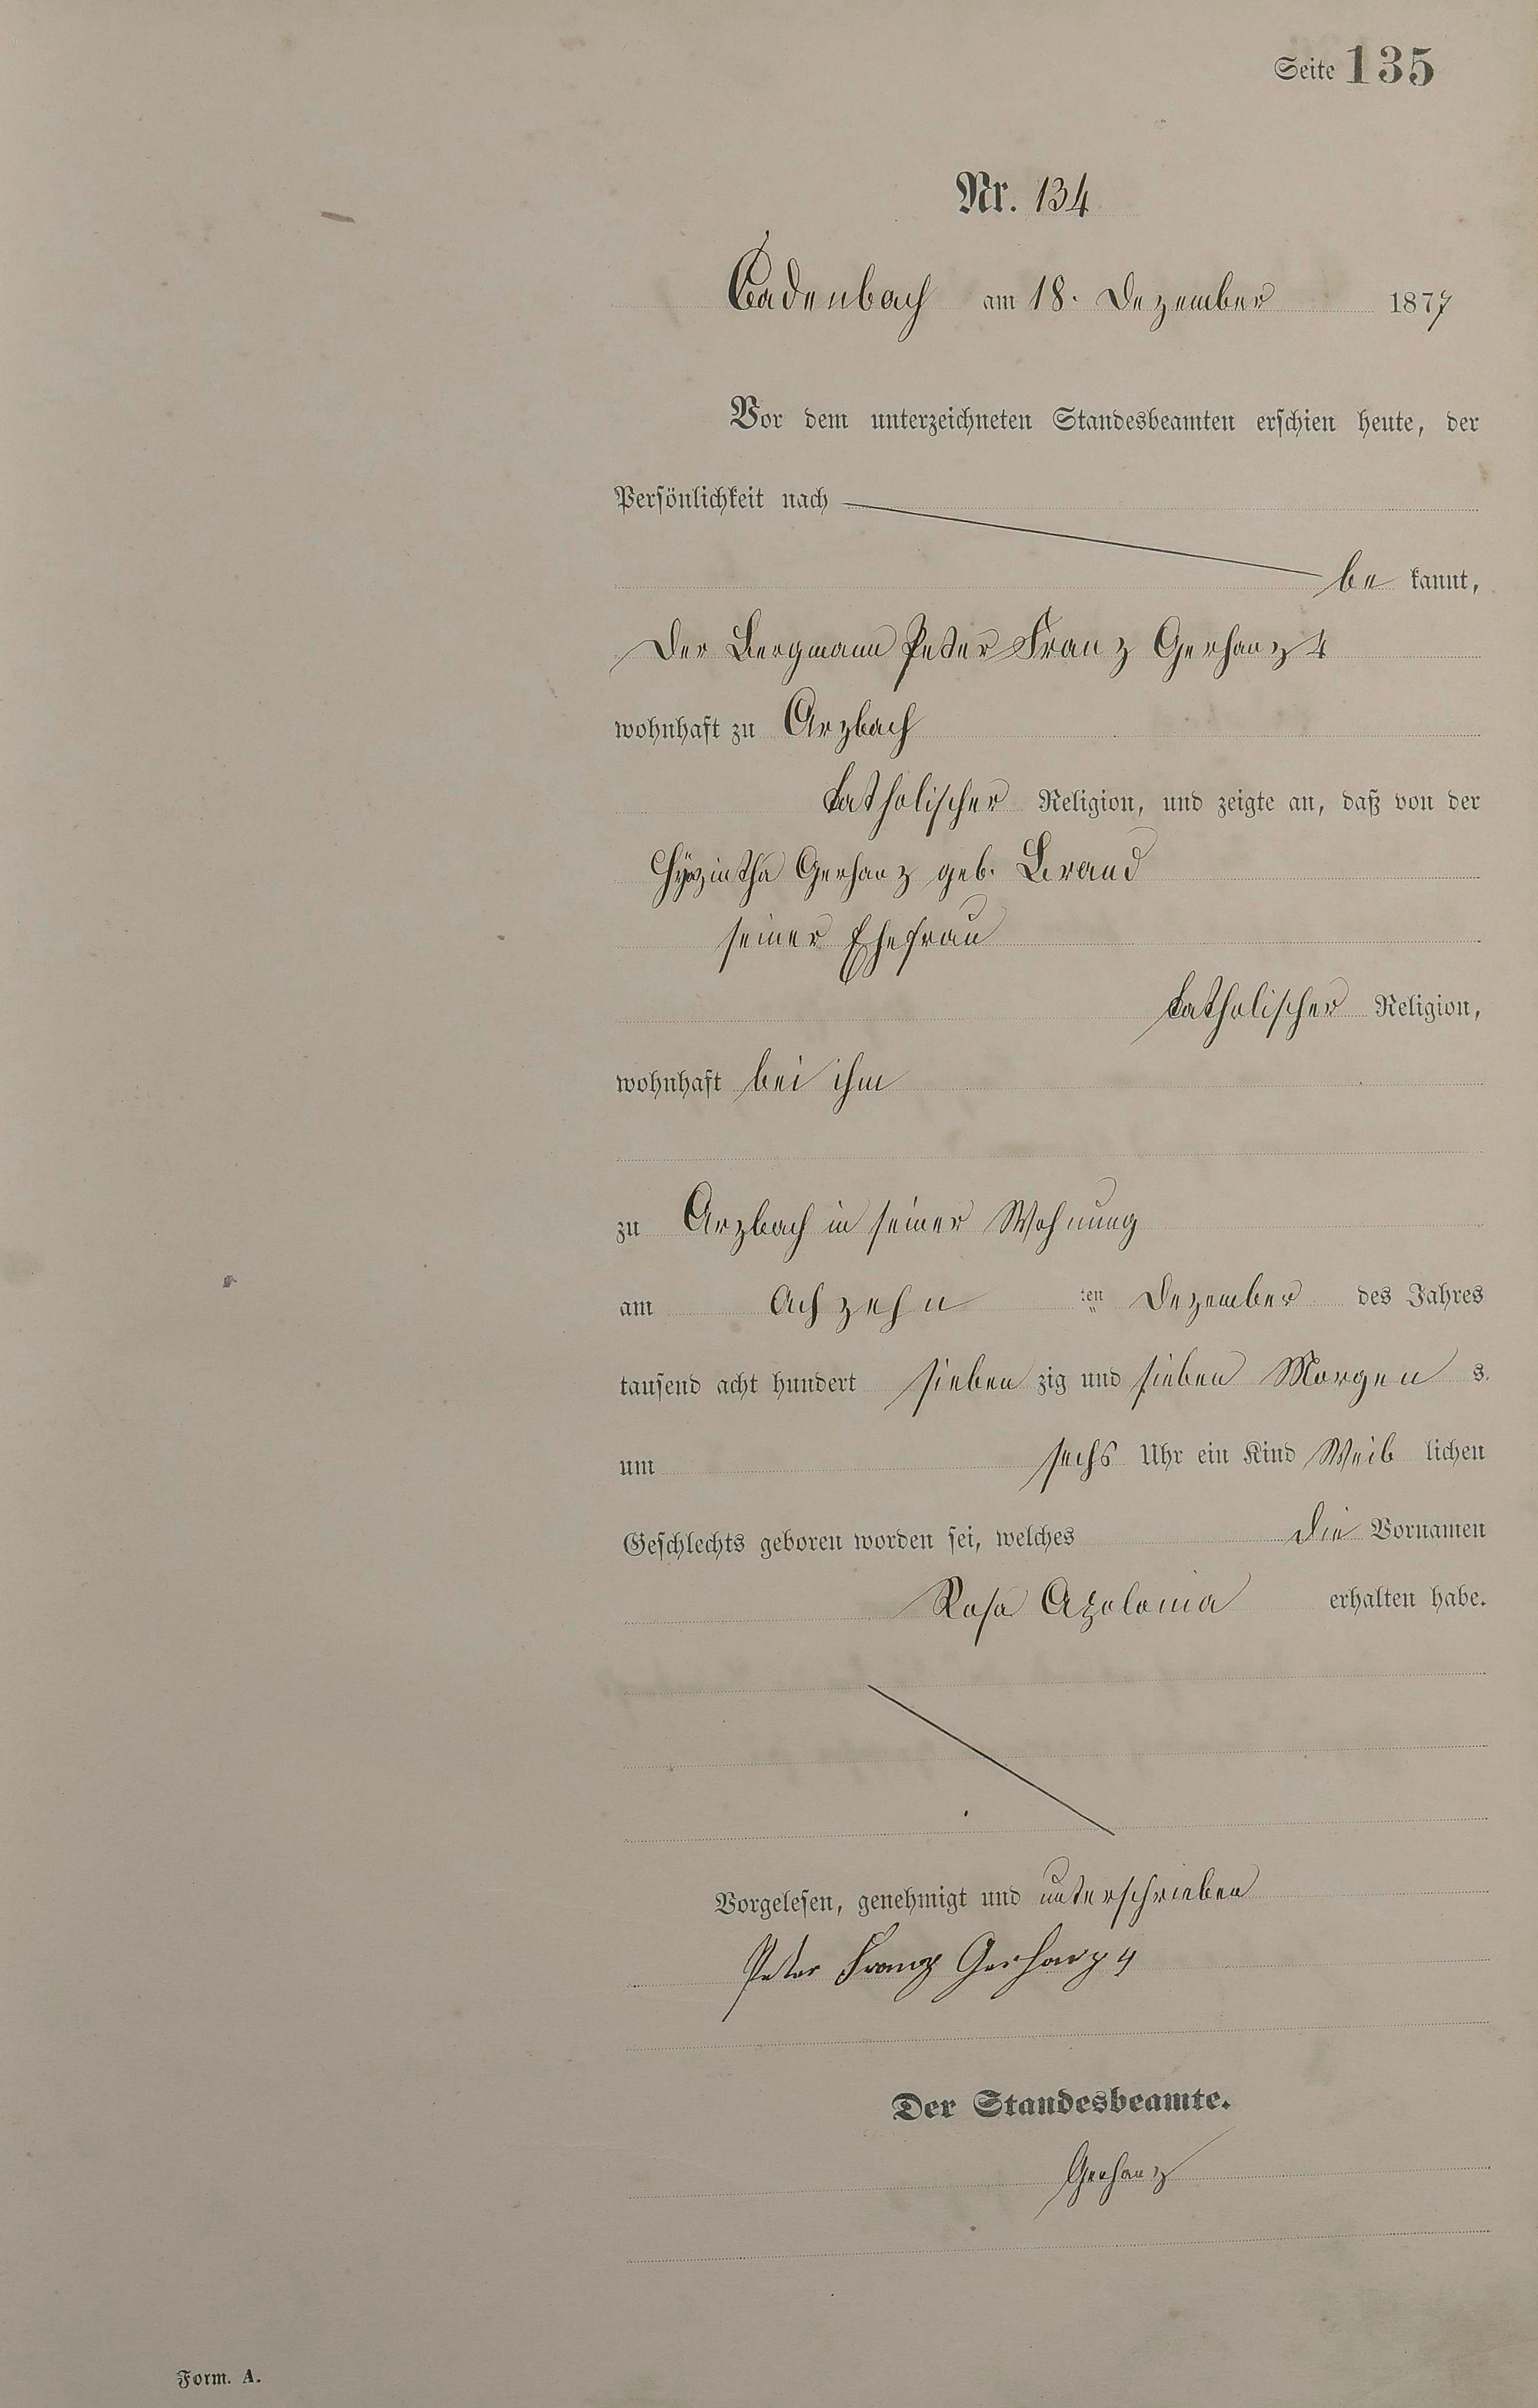 Seite 135
Nr. 134
Cadenbach am 18. Dezember 1877
Vor dem unterzeichneten Standesbeamten erschien heute, der
Persönlichkeit nach
be kannt,
Der Bergmann Peter Franz Gerharz 4
wohnhaft zu Arzbach
katholischer Religion, und zeigte an, daß von der
Hyazintha Gerharz geb. Brand
seiner Ehefrau
katholischer Religion,
wohnhaft bei ihm
zu Arzbach in seiner Wohnung
am Achzehn ten Dezember des Jahres
tausend acht hundert sieben zig und sieben Morgen s.
um sechs Uhr ein Kind Weib lichen
Geschlechts geboren worden sei, welches die Vornamen
Rosa Apolonia erhalten habe.
Vorgelesen, genehmigt und unterschrieben
Peter Franz Gerharz 4
Der Standesbeamte.
Gerharz
Form. A.